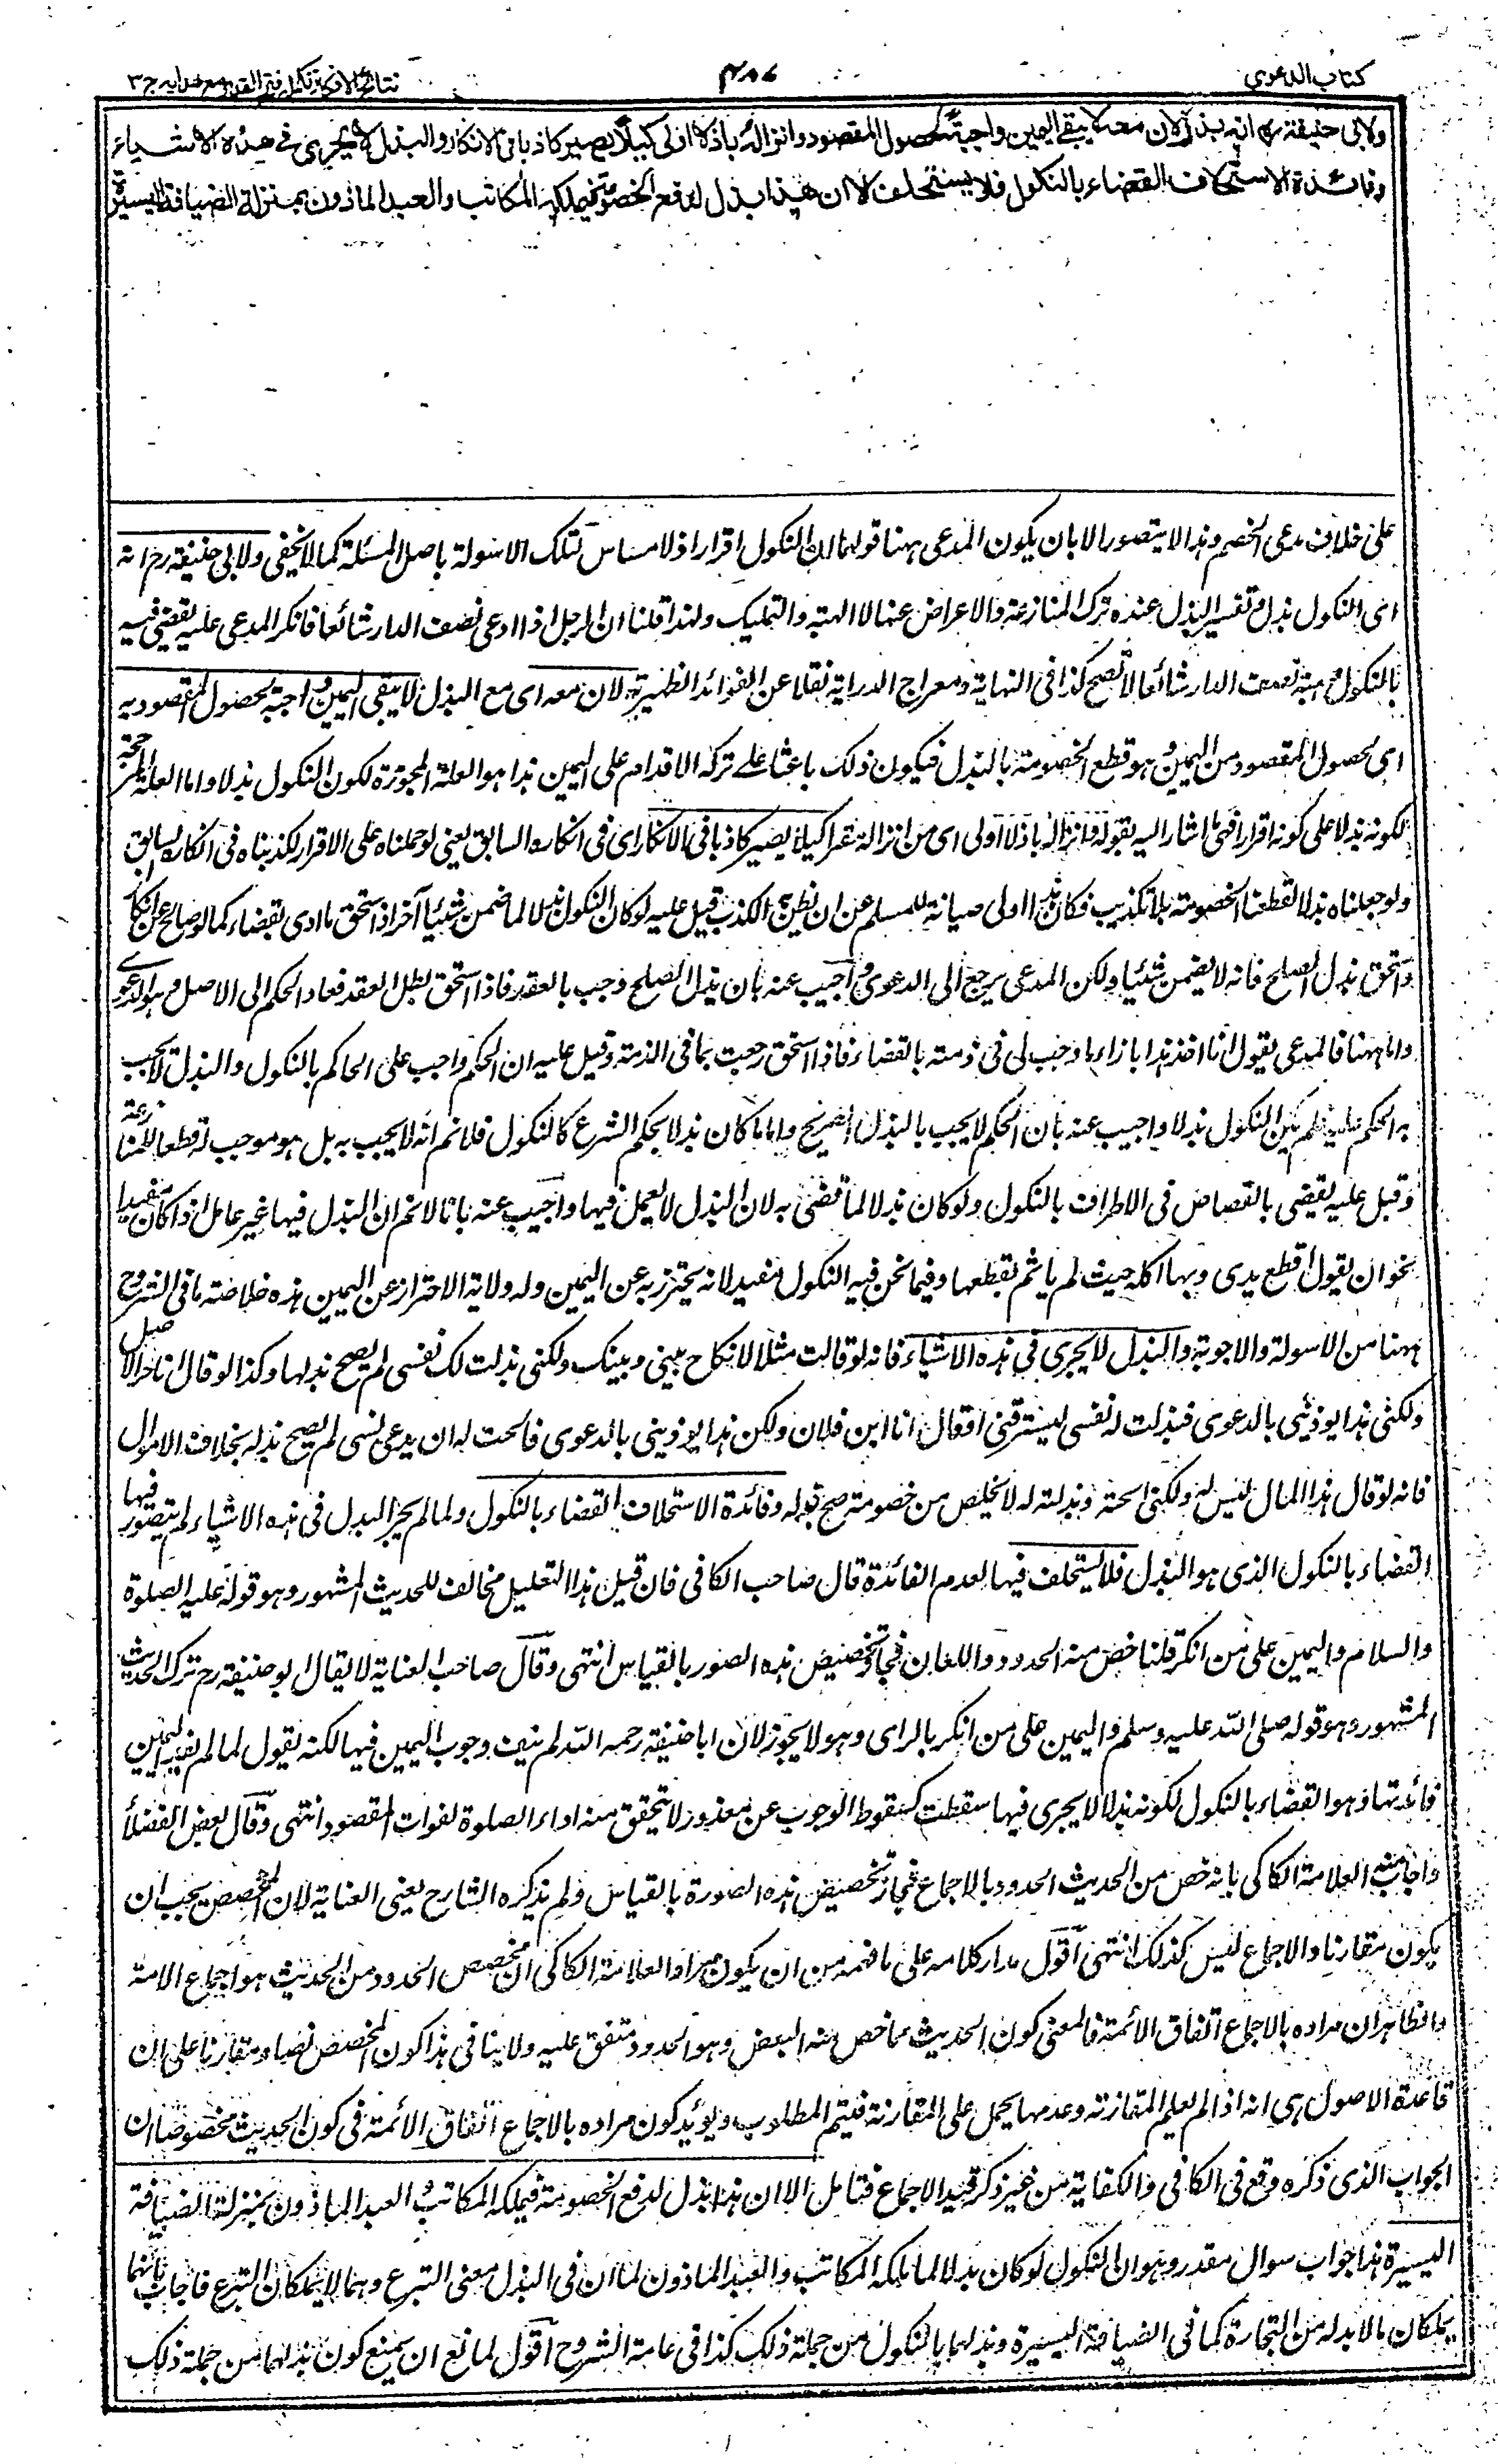 كتاب الدعوى
٤٨٦
نتائج الافكار تكملة فتح القدير مع هدايه ج ٣
ولابى حنيفة رح انه بذل لان معه لا يبقى اليمين واجبة لحصول المقصود وانزاله باذلا اولى كيلا يصير كاذبا فى الانكار والبذل لا يجرى فى هذه الاشياء
وفائدة الاستحلاف القضاء بالنكول فلا يستحلف الا ان هذا بذل لدفع الخصومة فيملكه المكاتب والعبد الماذون بمنزلة الضيافة اليسيرة
على خلاف مدعى الخصم وهذا لا يتصور الا بان يكون المدعى ههنا قولهما ان النكول اقرار اذ لا مساس لتلك الاسولة باصل المسئلة كما لا يخفى ولابى حنيفة رح انه
اى النكول بذل وتفسير البذل عنده ترك المنازعة والاعراض عنها لا الهبة والتمليك ولهذا قلنا ان الرجل اذا ادعى نصف الدار شائعا فانكر المدعى عليه يقضى فيه
بالنكول وهبة نصف الدار شائعا لا تصح كذا فى النهاية ومعراج الدراية نقلا عن الفوائد الظهيرية لان معه اى مع البذل لا يبقى اليمين واجبة لحصول المقصود به
اى لحصول المقصود من اليمين وهو قطع الخصومة بالبذل فيكون ذلك باعثا على تركه الاقدام على اليمين هذا هو العلة المجوزة لكون النكول بذلا واما العلة المرجحة
لكونه بذلا على كونه اقرارا فهى ما اشار اليه بقوله وانزاله باذلا اولى اى من انزاله مقرا كيلا يصير كاذبا فى الانكار اى فى انكاره السابق يعنى لو حملناه على الاقرار لكذبناه فى انكاره السابق
ولو جعلناه بذلا لقطعنا الخصومة بلا تكذيب فكان هذا اولى صيانة للمسلم عن ان يظن به الكذب قيل عليه لو كان النكول بذلا لما ضمن شيئا آخر اذا استحق ما ادى بقضاء كما لو صالح عن انكار
واستحق بدل الصلح فانه لا يضمن شيئا ولكن المدعى يرجع الى الدعوى واجيب عنه بان بدل الصلح وجب بالعقد فاذا استحق بطل العقد فعاد الحكم الى الاصل وهو الدعوى
واما ههنا فالمدعى يقول انا اخذ هذا بازاء ما وجب لى فى ذمته بالقضاء فاذا استحق رجعت بما فى الذمة وقيل عليه ان الحكم واجب على الحاكم بالنكول والبذل لا يجب
به الحكم عليه فلم يكن النكول بذلا واجيب عنه بان الحكم لا يجب بالبذل الصريح واما ما كان بذلا بحكم الشرع كالنكول فلا نم انه لا يجب به بل هو موجب له قطعا للمنازعة
وقيل عليه يقضى بالقصاص فى الاطراف بالنكول ولو كان بذلا لما قضى به لان البذل لا يعمل فيها واجيب عنه بانا لا نم ان البذل فيها غير عامل اذا كان مفيدا
نحو ان يقول اقطع يدى وبها اكلة حيث لم ياثم بقطعها وفيما نحن فيه النكول مفيد لانه يحترز به عن اليمين وله ولاية الاحتراز عن اليمين هذه خلاصة ما فى الشروح
ههنا من الاسولة والاجوبة والبذل لا يجرى فى هذه الاشياء فانه لو قالت مثلا لا نكاح بينى وبينك ولكنى بذلت لك نفسى لم يصح بذلها وكذا لو قال انا حر الاصل
ولكنى هذا يوذينى بالدعوى فبذلت له نفسى ليسترقنى او قال انا ابن فلان ولكن هذا يوذينى بالدعوى فابحت له ان يدعى نسبى لم يصح بذله بخلاف الاموال
فانه لو قال هذا المال ليس له ولكنى ابحته وبذلته له لاتخلص من خصومته صح بذله وفائدة الاستحلاف القضاء بالنكول ولما لم يجز البذل فى هذه الاشياء لم يتصور فيها
القضاء بالنكول الذى هو البذل فلا يستحلف فيها لعدم الفائدة قال صاحب الكافى فان قيل هذا التعليل مخالف للحديث المشهور وهو قوله عليه الصلوة
والسلام واليمين على من انكر قلنا خص منه الحدود واللعان فجاز تخصيص هذه الصور بالقياس انتهى وقال صاحب العناية لا يقال ابو حنيفة رح ترك الحديث
المشهور وهو قوله صلى الله عليه وسلم واليمين على من انكر بالراى وهو لا يجوز لان ابا حنيفة رحمه الله لم ينف وجوب اليمين فيها لكنه يقول لما لم يفد اليمين
فائدتها وهو القضاء بالنكول لكونه بذلا لا يجرى فيها سقطت كسقوط الوجوب عن معذور لا يتحقق منه اداء الصلوة لفوات المقصود انتهى وقال بعض الفضلاء
واجاب عنه العلامة الكاكى بانه خص من الحديث الحدود بالاجماع فجاز تخصيص هذه الصورة بالقياس ولم يذكره الشارح يعنى العناية لان المخصص يجب ان
يكون مقارنا والاجماع ليس كذلك انتهى اقول مدار كلامه على ما فهمه من ان يكون مراد العلامة الكاكى ان مخصص الحدود من الحديث هو اجماع الامة
والظاهر ان مراده بالاجماع اتفاق الائمة فالمعنى كون الحديث مما خص منه البعض وهو الحدود متفق عليه ولا ينافى هذا كون المخصص نصا ومقارنا على ان
قاعدة الاصول هى انه اذا لم يعلم المقارنة وعدمها يحمل على المقارنة فيتم المطلوب ويؤيد كون مراده بالاجماع اتفاق الائمة فى كون الحديث مخصوصا ان
الجواب الذى ذكره وقع فى الكافى والكفاية من غير ذكر قيد الاجماع فتامل الا ان هذا بذل لدفع الخصومة فيملكه المكاتب والعبد الماذون بمنزلة الضيافة
اليسيرة هذا جواب سوال مقدر وهو ان النكول لو كان بذلا لما ملكه المكاتب والعبد الماذون لما ان فى البذل معنى التبرع وهما لا يملكان التبرع فاجاب بانهما
يملكان ما لا بد له من التجارة كما فى الضيافة اليسيرة وبذلهما بالنكول من جملة ذلك كذا فى عامة الشروح اقول لمانع ان يمنع كون بذلهما من جملة ذلك